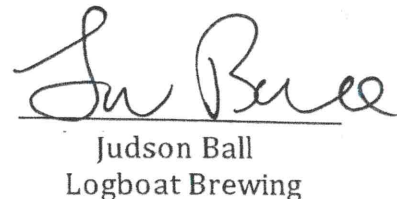 Judson Ball
Logboat Brewing